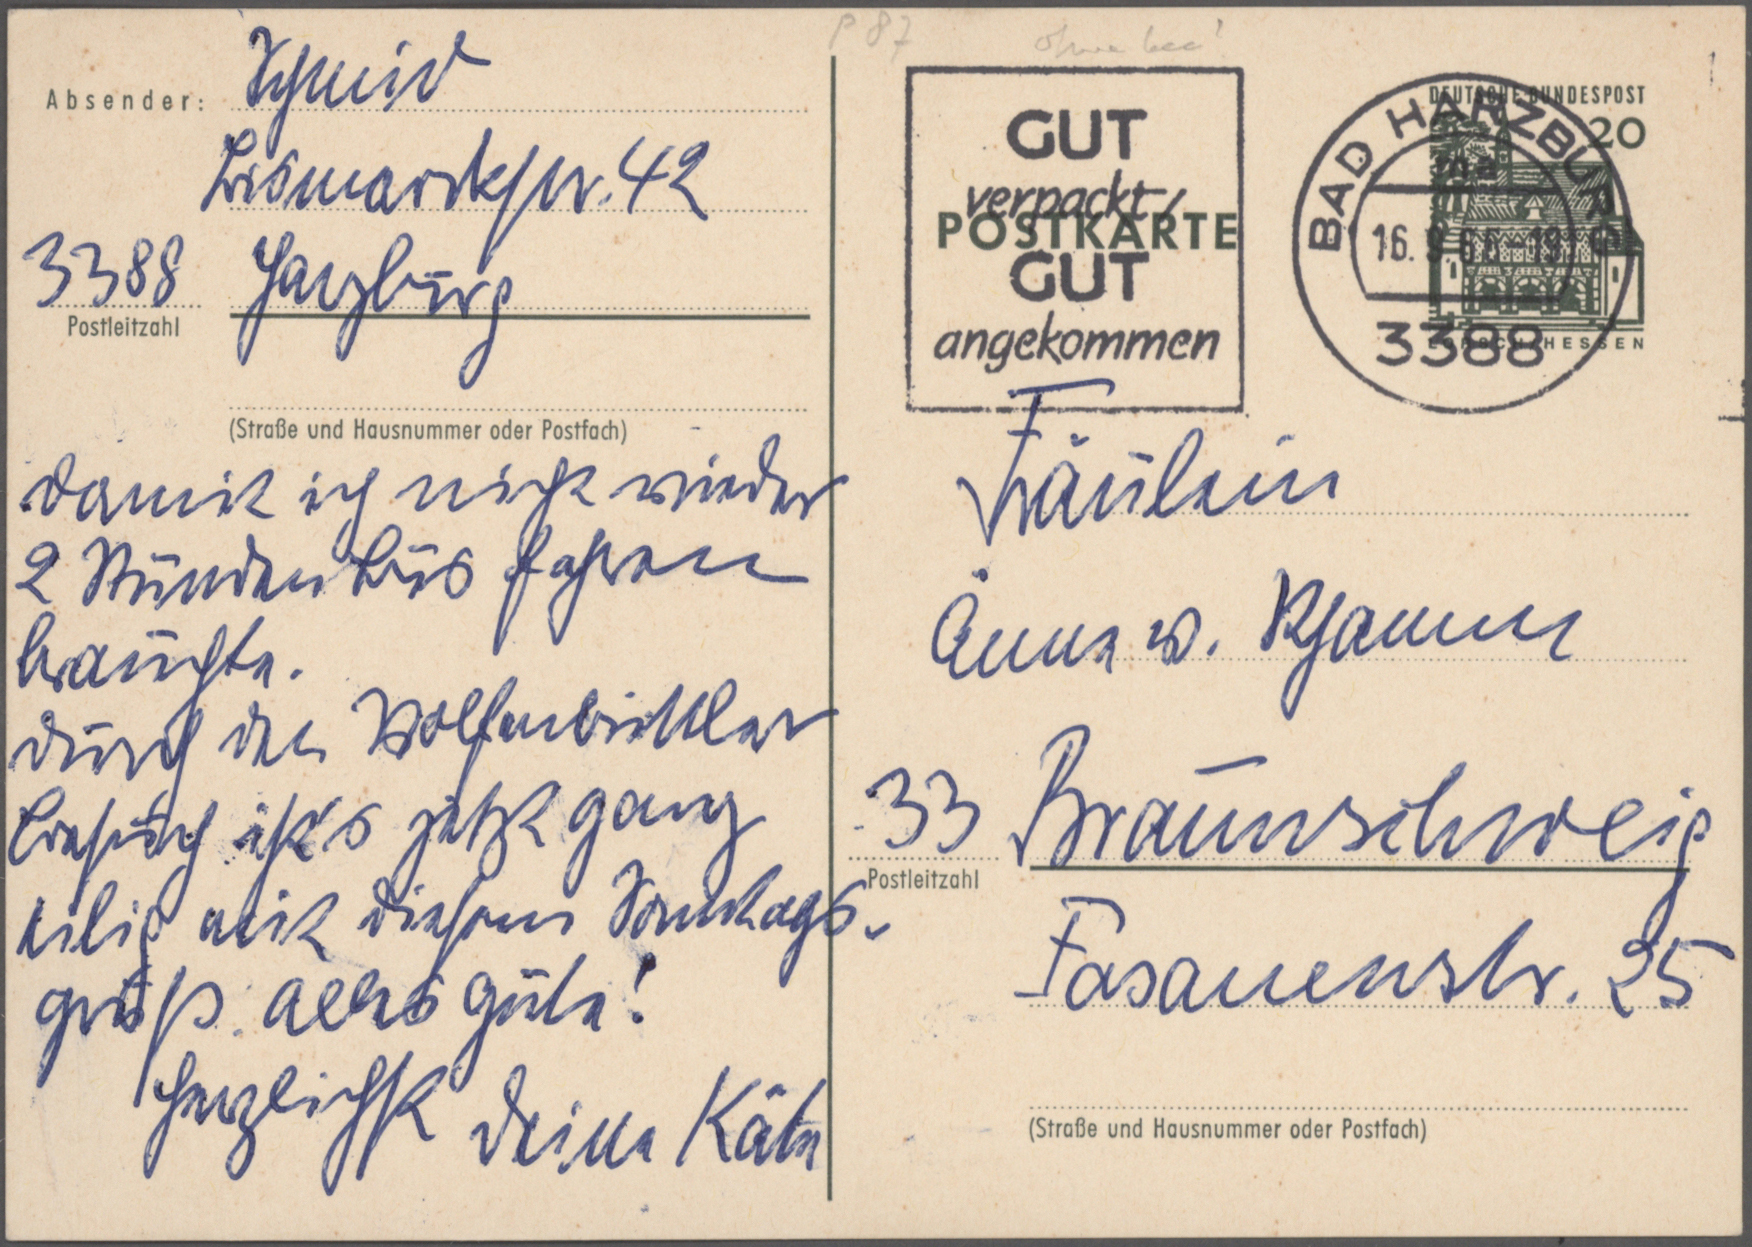 P 87
Absender: Schmid
Bismarckstr. 42
3388 Harzburg
Postleitzahl
(Straße und Hausnummer oder Postfach)
damit ich nicht wieder
2 Stunden Bus fahren
brauchte.
durch den Wolfenbüttler
Besuch ist's jetzt ganz
eilig mit diesem Sonntags-
gruß. Alles Gute!
Herzlichst Deine Käte
GUT
verpackt,
GUT
angekommen
POSTKARTE
BAD HARZBURG
16. 9. 66-19
3388
DEUTSCHE BUNDESPOST
20
LORSCH/HESSEN
Fräulein
Änne v. Rhamm
33 Braunschweig
Postleitzahl
Fasanenstr. 25
(Straße und Hausnummer oder Postfach)